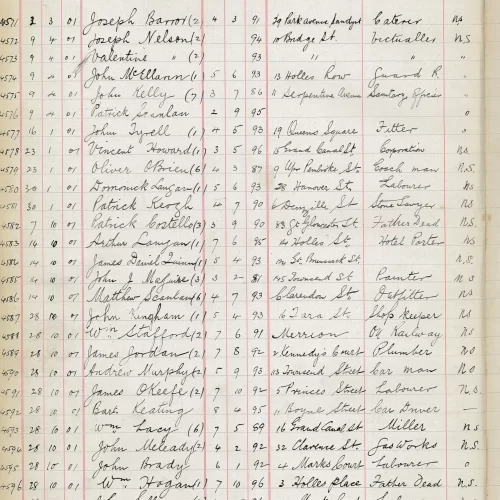 4571 2 3 01 Joseph Barror (2) 4 3 91 Park avenue Sandymt Caterer NS
4572 9 4 01 Joseph Nelson (2) 94 10 Bridge St. Victualler NS
4573 9 4 01 Valentine " (2) 93 " " "
4574 9 4 01 John (1) 5 6 93 13 Holles Row Guard R. "
4575 9 4 01 John Kelly (7) 3 7 86 11 Serpentine Avenue Sanitary Officer "
4576 9 4 01 Patrick Scanlan 2 9 95 "
4577 16 1 01 John Tyrell (1) 4 5 93 19 Queens Square Fitter "
4578 23 1 01 Vincent Howard (1) 3 5 96 15 Grand Canal St Corporation NS.
4579 23 1 01 Oliver O'Brien (6) 4 3 87 9 Upr Pembroke St. Coach man N.S.
4580 30 1 01 Dominick Langan (1) 5 6 93 28 Hanover St. Labourer NS
4581 30 1 01 Patrick Keogh 4 7 90 6 Denzille St Stone Sawyer NS.
4582 7 10 01 Patrick Costello (3) 3 9 90 83 Gt Gloucester St. Father Dead NS.
4583 14 10 01 Arthur Langan (1) 7 6 95 14 Holles St. Hotel Porter NS.
4584 14 10 01 James Daniel (1) 5 4 93 St. Brunswick St. N.S.
4585 14 10 01 John J Maguire (3) 3 2 81 145 Townsend St Painter NS
4586 14 10 01 Matthew Scanlan (6) 4 7 93 Clarendon St. Outfitter NS
4587 28 10 01 John Kingham (1) 5 4 93 16 Tara St. Shop Keeper NS
4588 28 10 01 Wm Stafford (2) 7 6 91 Merrion On Railway NS
4589 28 10 01 James Jordan (2) 7 8 92 2 Kennedy's Court Plumber NS
4590 28 10 01 Andrew Murphy (2) 5 9 93 Townsend Street Car man NS
4591 28 10 01 James OKeefe (2) 7 10 92 5 Princes Street Labourer N.S.
4592 28 10 01 Bart. Keating 8 4 95 11 Boyne Street Car Driver —
4593 28 10 01 Wm Lacy (6) 7 5 89 16 Grand Canal St Miller NS
4594 28 10 01 John Meleady (2) 4 2 92 32 Clarence St. Gas Works N.S.
4595 28 10 01 John Brady 6 1 92 4 Marks Court Labourer "
4596 28 10 01 Wm Hogan (1) 7 10 96 3 Holles Place Father Dead N.S.